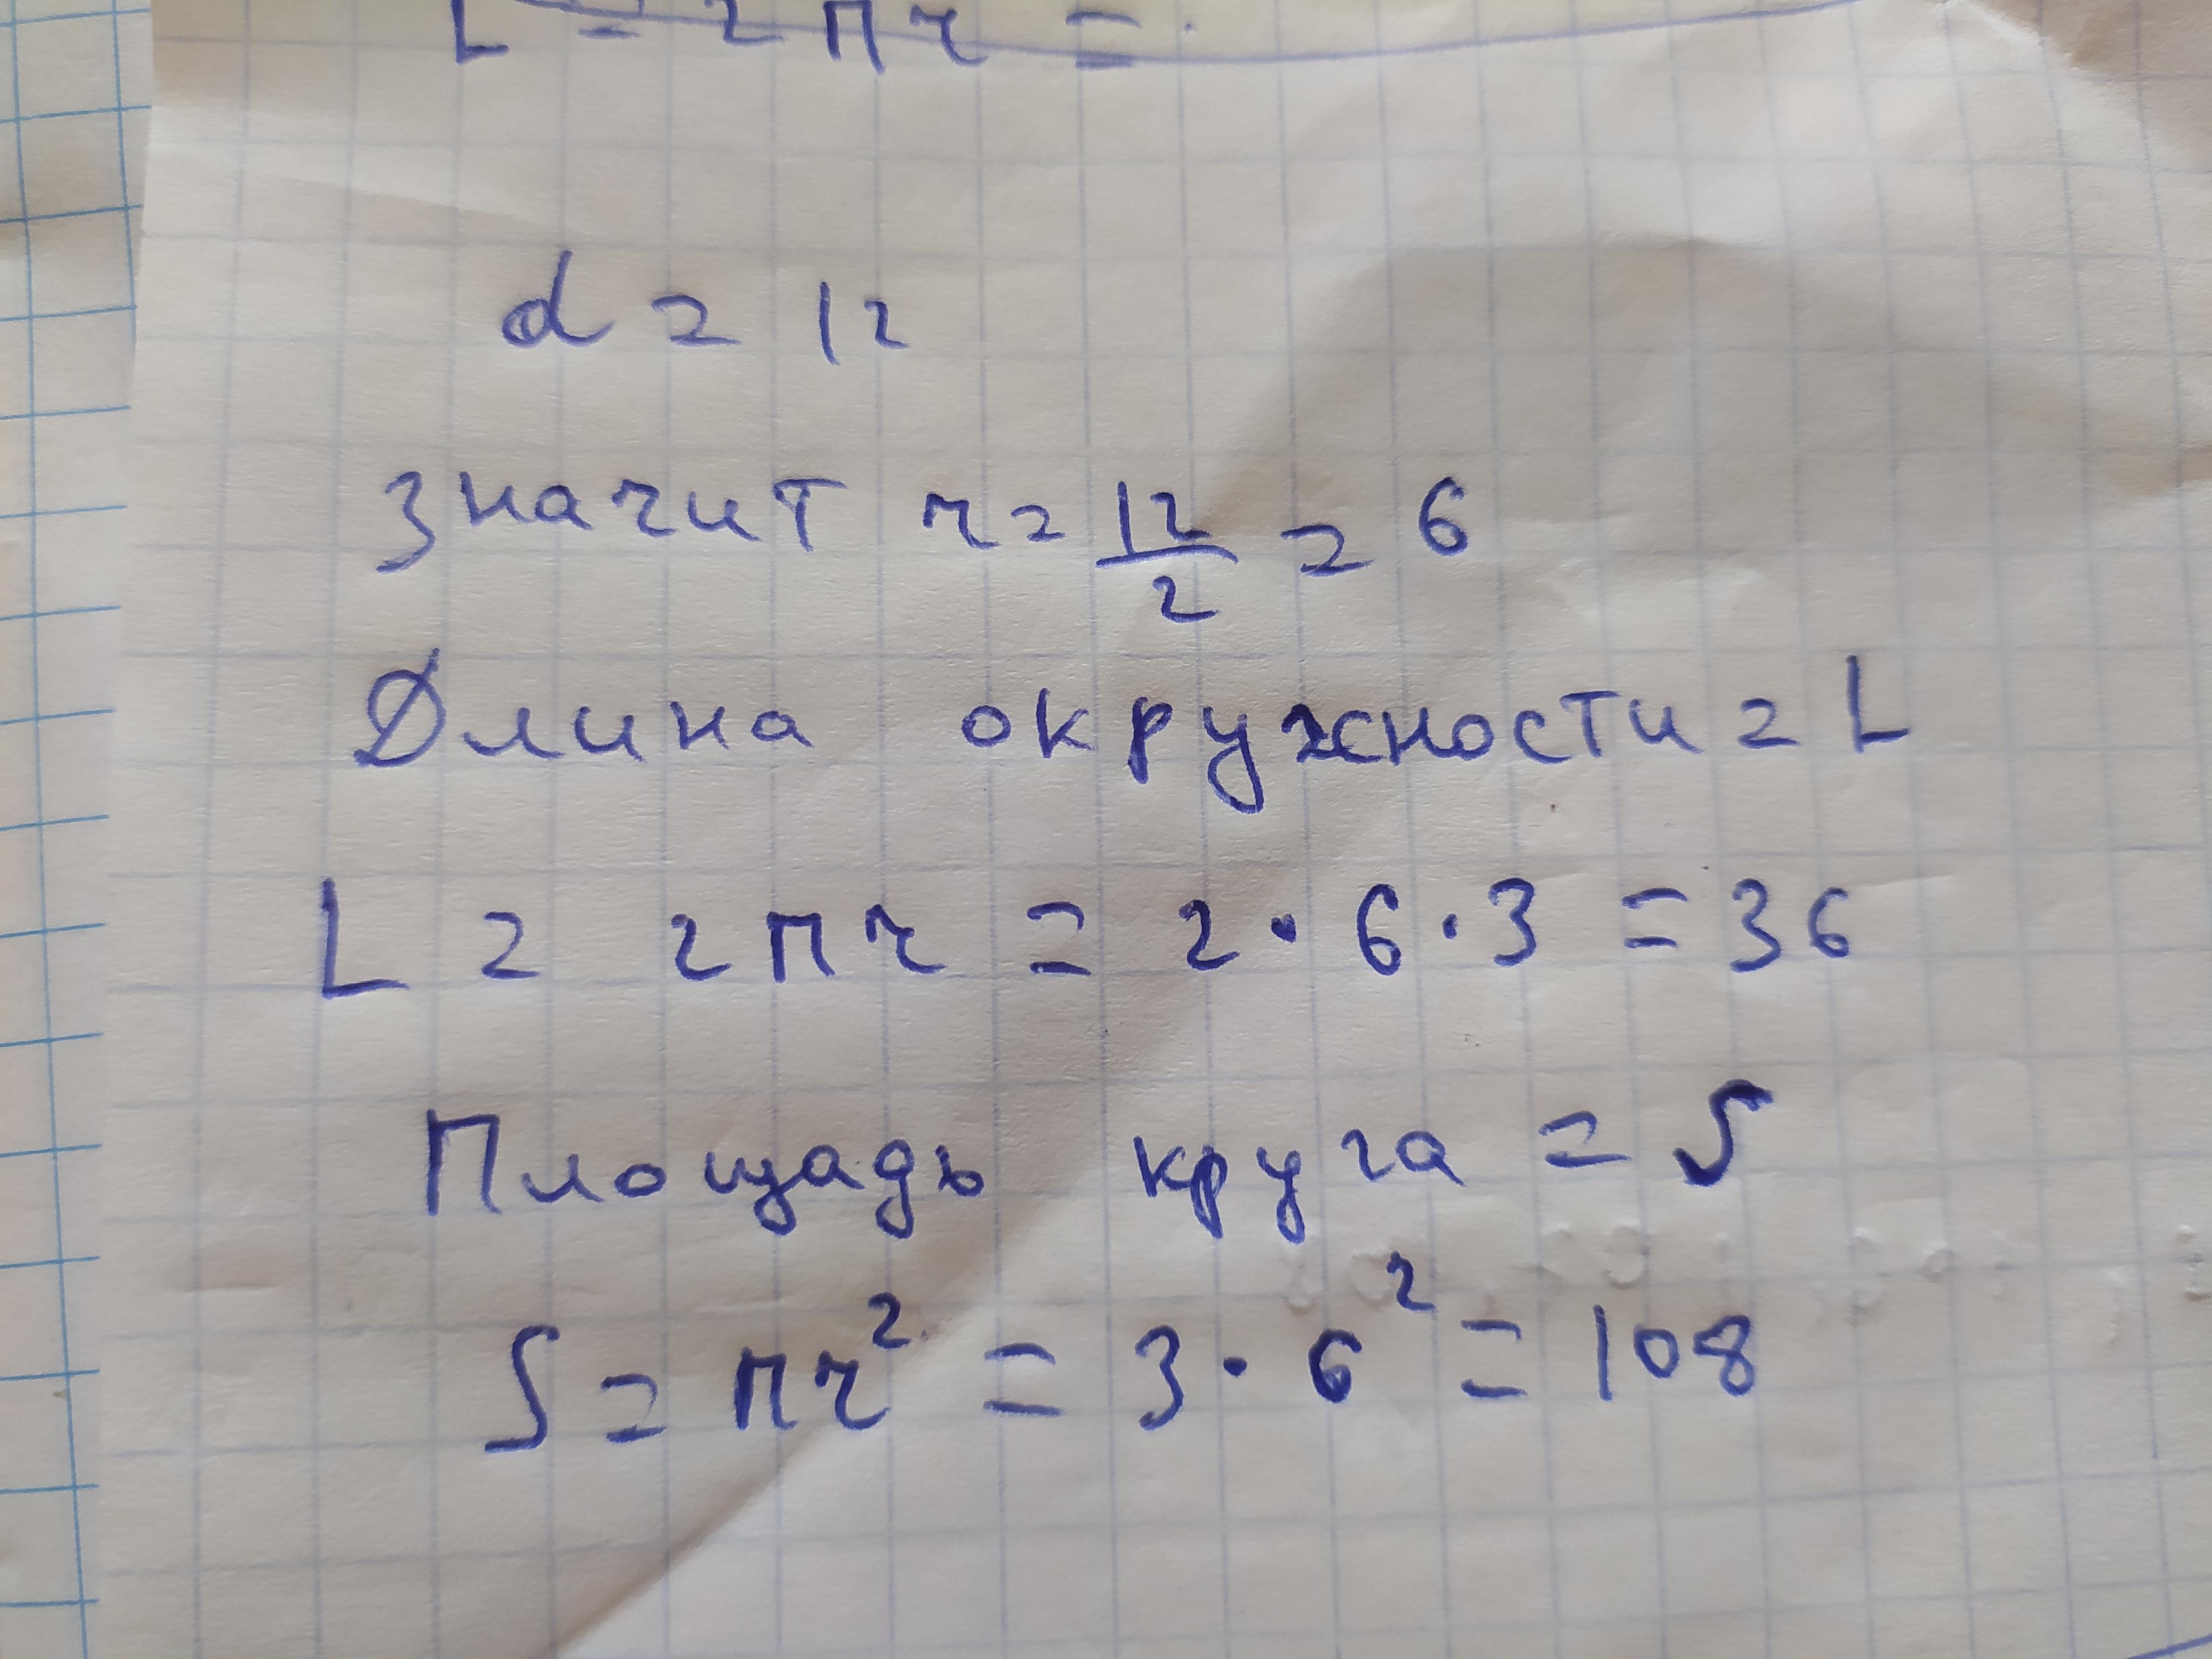 L = 2πr =
d = 12
значит r = 12/2 = 6
Длина окружности = L
L = 2πr = 2 · 6 · 3 = 36
Площадь круга = S
S = πr² = 3 · 6² = 108